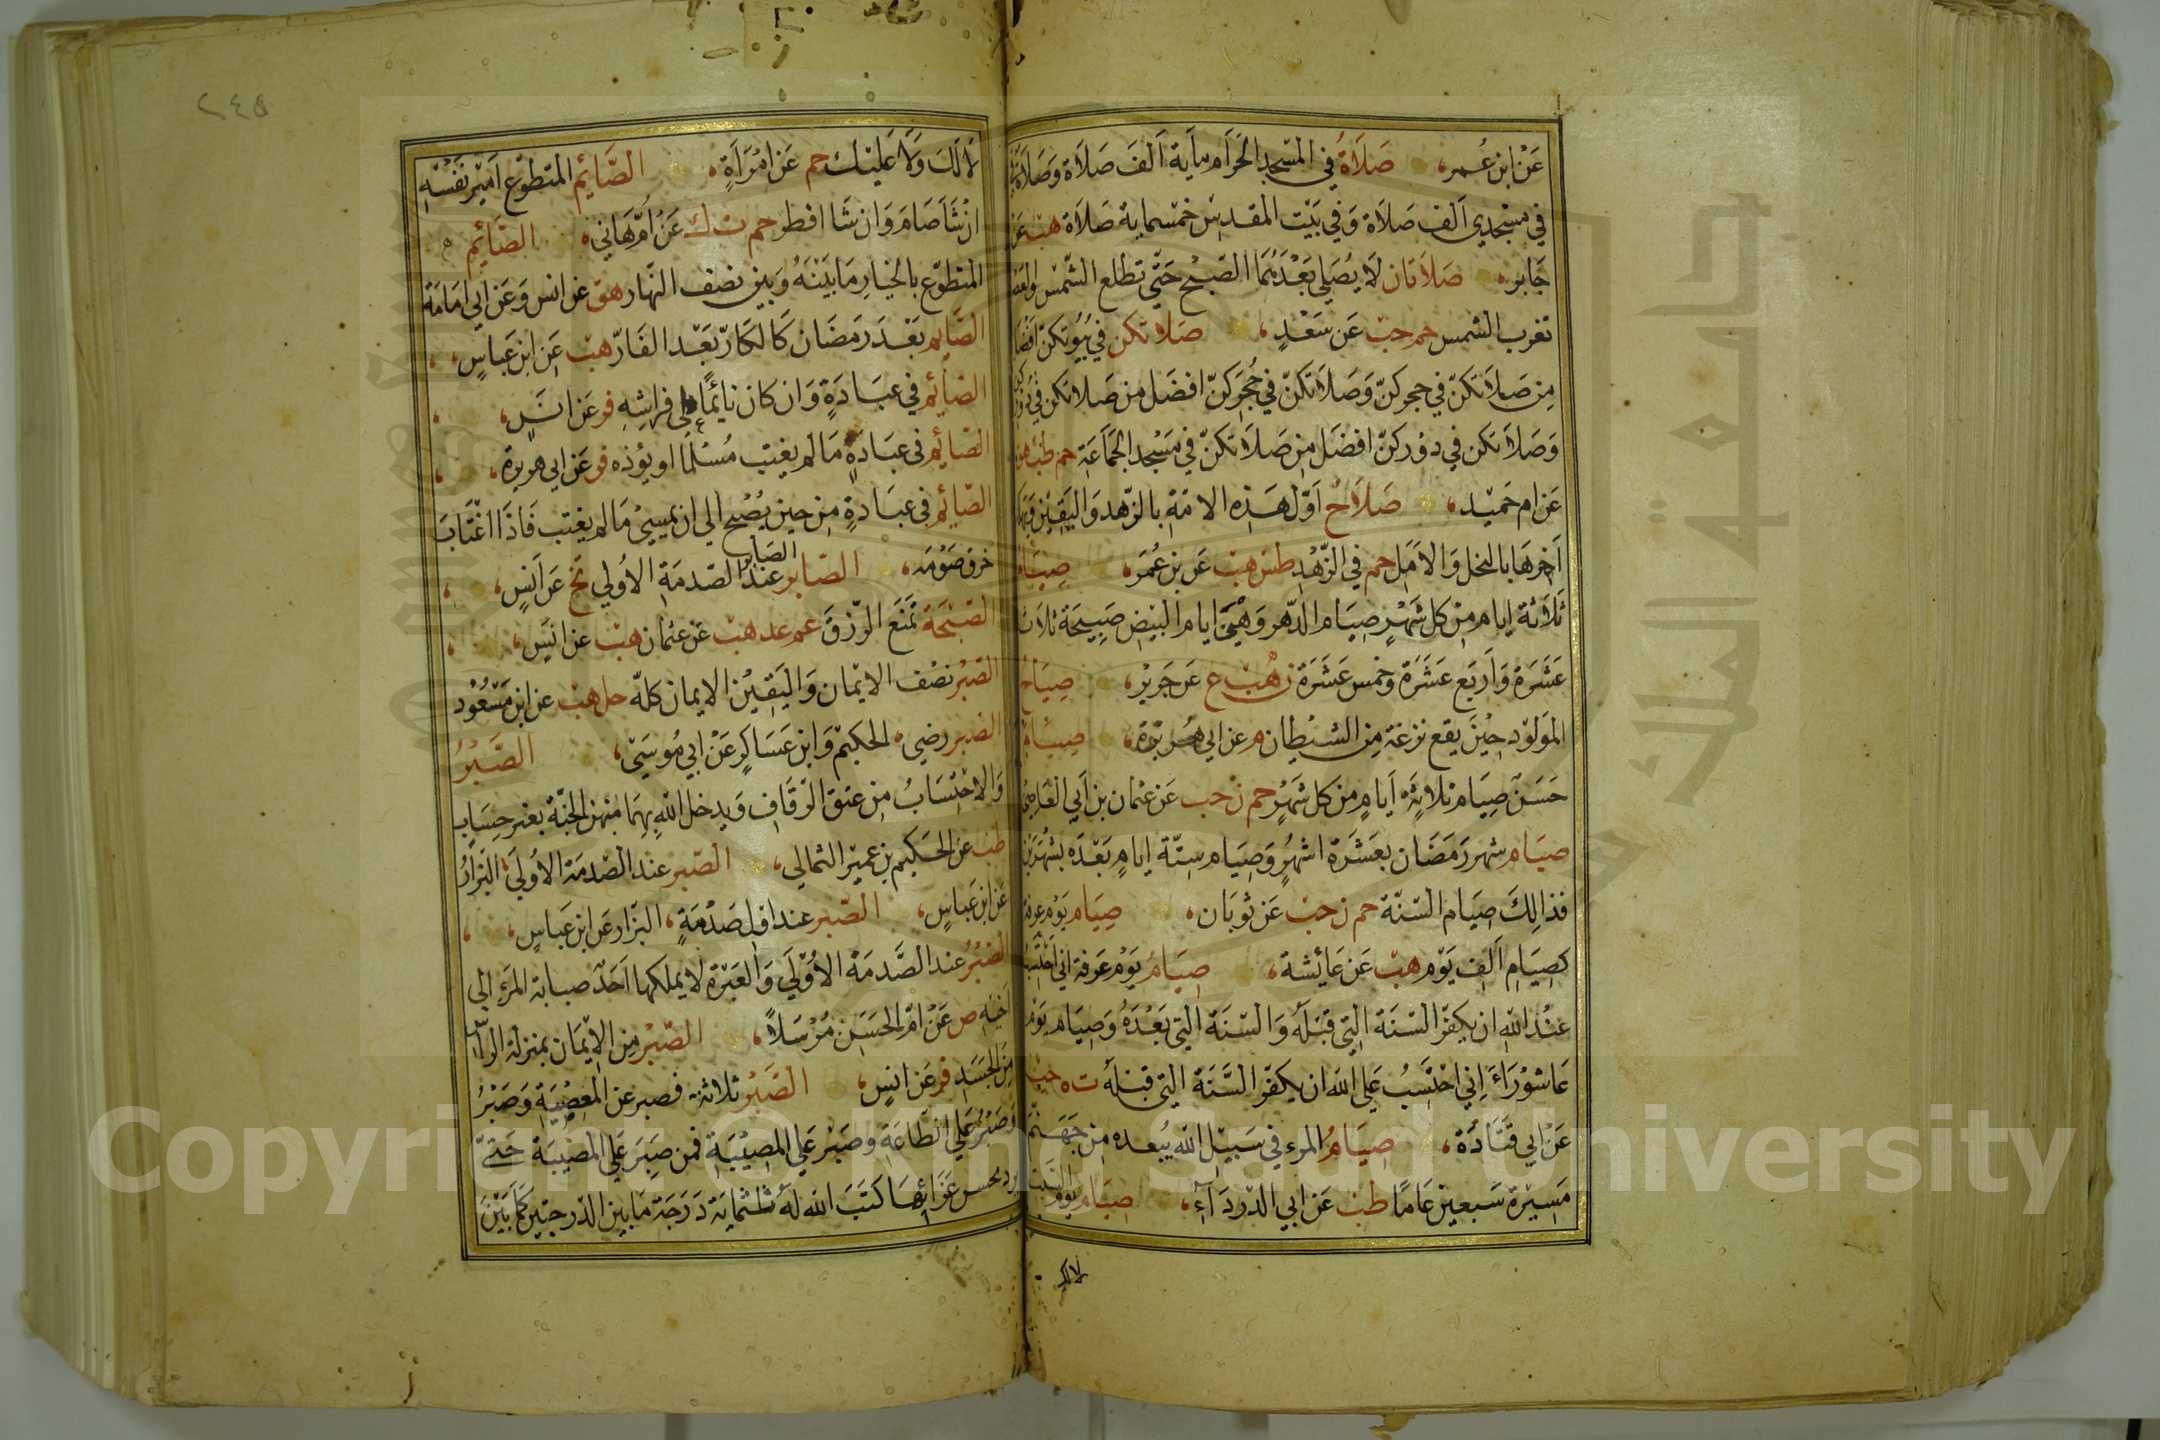 عَنْ ابْنِ عُمر، صَلاَةٌ في المسْجِد الحَرَام مِايَة اَلفَ صَلاَة وَصَلاَة
في مسْجدي اَلف صَلاَة وَفي بَيْت المقدِس خمْسماية صَلاَة هب عَن
جَابره صَلاَتان لَا يُصَلي بَعْدَهُمَا الصّبْح حَتّي تطلع الشّمْس والعَصْر
تغرب الشمس حم حب عَن سَعْدٍ، صَلاتكن في بُيُوتكن افضَل
مِن صَلاَتكنّ في حجركنّ وَصَلاَتكنّ في حُجَركَنّ افضَل من صَلاتكن في دوركن
وَصَلاَتكن في دوركنّ افضَل مِن صَلاَتكنّ في مَسْجد الجَمَاعَة حم طب هق
عَن ام حَميْد، صَلاَحُ اَوّل هَذِه الامّةِ بالزّهد وَاليَقيْن
اَخِرهَا بالبخل وَالاَمَل حم في الزّهْدِ طس هب عَن بن عُمَر، صِيَام
ثَلاَثة ايام مِن كل شَهْرٍ صِيَام الدّهر وَهيَ ايام البيْض صَبِيحَة ثلاَث
عَشَرَة وَاَربَع عَشَرَة وَخمس عَشَرَة ن هب ع عَن جَريْر، صِيَاح
المَولوْد حِيْنَ يقع نزغة مِن الشيْطان م عَن ابي هُريْرَة، صِيَامٌ
حَسَنٌ صِيَام ثلاثَة اَيامٍ من كل شَهْرٍ حم ن حب عَن عثمان بن اَبي العَاص
صيَام شهر رَمَضَان بعَشَرَة اشهُرٍ وَصِيَام سِتّة ايامٍ بَعْدَه بشهْرَين
فذالِكَ صِيَام السّنّة حم ن حب عَن ثوبَان، صِيَام يَوْم عرفة
كصِيَامِ اَلف يَوْم هب عَن عَايْشة، صِيَامُ يَوْم عَرفة اني احْتَسب
عنْد اللهِ ان يكفّر السّنَة التي قبْلَه وَالسّنَة التي بَعْدَهُ وَصِيَام يَوْم
عَاشوْرَاءَ اِني احْتسَبُ عَلي الله ان يكفّر السَّنَة التي قبْلهُ ت ه حب
عَنْ ابي قَتَادَة، صِيَامُ المرءِ في سَبيْل الله يُبعده مِن جَهَنَّمَ
مَسِيْرة سَبعِين عَامًا طب عَن ابي الدّردَآءِ، صِيَام يوم السّبت
لالك
٢٤٥
لاَ لَكَ وَلاَ عَليْك حم عَن امْرَأةٍ، الصَّايِم المتطوّع اَميْر نَفْسِه
انْ شَآ صَامَ وَان شَا افطر حم ت ك عَنْ اُمّ هَاني، الصَّايِم
المتطوّع بالخيارِ مَا بَيْنَهُ وَبين نصف النّهار هق عَن انس وَعَن ابي امَامَة
الصَّايم بَعْدَ رَمَضَان كَالكَارّ بَعْد الفَارّ هب عَن ابْن عَباسٍ،
الصَّائِم في عبَادَةٍ وَان كان نائمًا علي فراشِه فر عَن انسٍ،
الصَّائم في عبَادةٍ مَا لم يغتب مُسْلمًا او يؤذه فر عَن ابي هريرة،
الصّائم في عبَادةٍ مِن حِين يُصْبح الي ان يمسيْ مَا لم يغتب فَاذَا اغْتَابَ
خرق صَوْمَه، الصّابر الصّابر عِنْدَ الصّدمَةِ الاُولي تخ عَن اَنسٍ،
الصّبْحَة تمْنَع الرّزقَ عم عد هب عَن عثمان هب عَن انسٍ،
الصَّبْرُ نصْف الايْمَان وَاليَقيْنُ الايمان كلّه حل هب عَن ابن مَسْعُوْد
الصَّبر رضي، الحكيْم وَابْن عَسَاكِر عَنْ ابي مُوسَيْ، الصَّبْرُ
وَالاحْتِسَابُ مِن عتق الرّقاف وَيدخل اللهِ بهمَا منْهن الجنّة بغير حِسَابٍ
طب عَن الحَكيم بن عميْر الثمالي، الصّبر عند الصّدمَة الاُولَى البَزّارُ
عَن ابن عَباسٍ، الصَّبر عند اوّل صَدْمَةٍ، البَزّار عَن ابْن عَباسٍ،
الصَّبْرُ عند الصَّدمَة الاُوْلَي وَالعَبْرَة لاَ يملكهَا اَحَدٌ صبابَة المَرءِ الي
اَخيْهِ ص عَنْ الحَسَن مُرْسَلاً، الصّبْر مِن الاِيْمَان بمنزلَة الراسِ
مِن الجَسَد فر عَن انسٍ، الصَّبْرُ ثلاثة فصبر عَن المعصْيَةِ وَصَبْرٌ
وَصَبْرٌ عَلي الطّاعَةِ وصَبْرٌ عَلي المصيْبَةِ فمن صَبَر عَلي المصيْبَة حَتّي
يردّ بحسن عَزَائِهَا كَتَبَ الله لَهُ ثلثماية دَرَجَة مَا بين الدّرجتين كمَا بَيْن
Copyright © King Saud University
جامعة الملك سعود